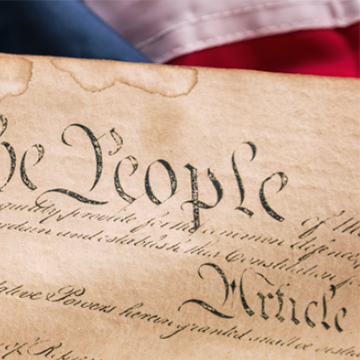 he People of th
quility, provide for the common defence,
rdain and establish this Constitution of
Article
lative Powers herein granted shall be veste
of